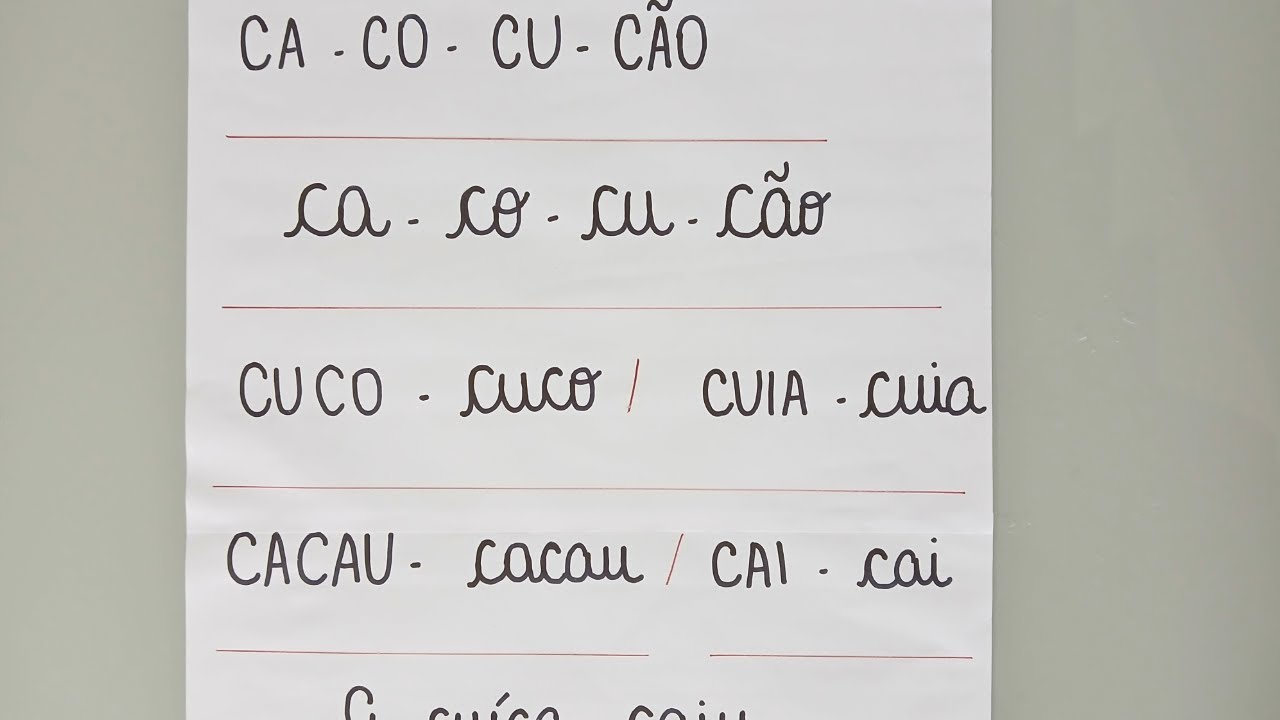 CA - CO - CU - CÃO
ca - co - cu - cão
CUCO - cuco / CUIA - cuia
CACAU - cacau / CAI - cai